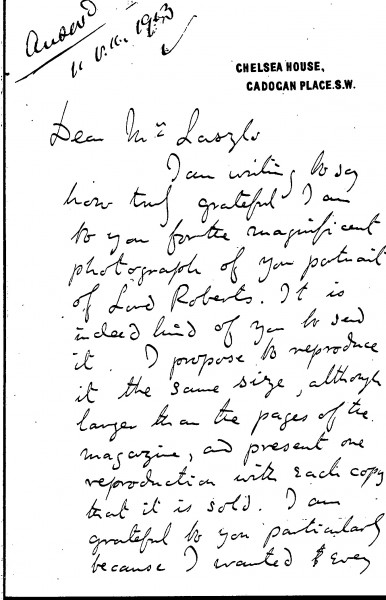 Answd
11 V.K. 1913
CHELSEA HOUSE,
CADOGAN PLACE.S.W.
Dear Mr Laszlo
I am writing to say
how truly grateful I am
to you for the magnificent
photograph of you portrait
of Lord Roberts. It is
indeed kind of you to send
it. I propose to reproduce
it the same size, although
larger than the pages of the
magazine, and present one
reproduction with each copy
that it is sold. I am
grateful to you particularly
because I wanted